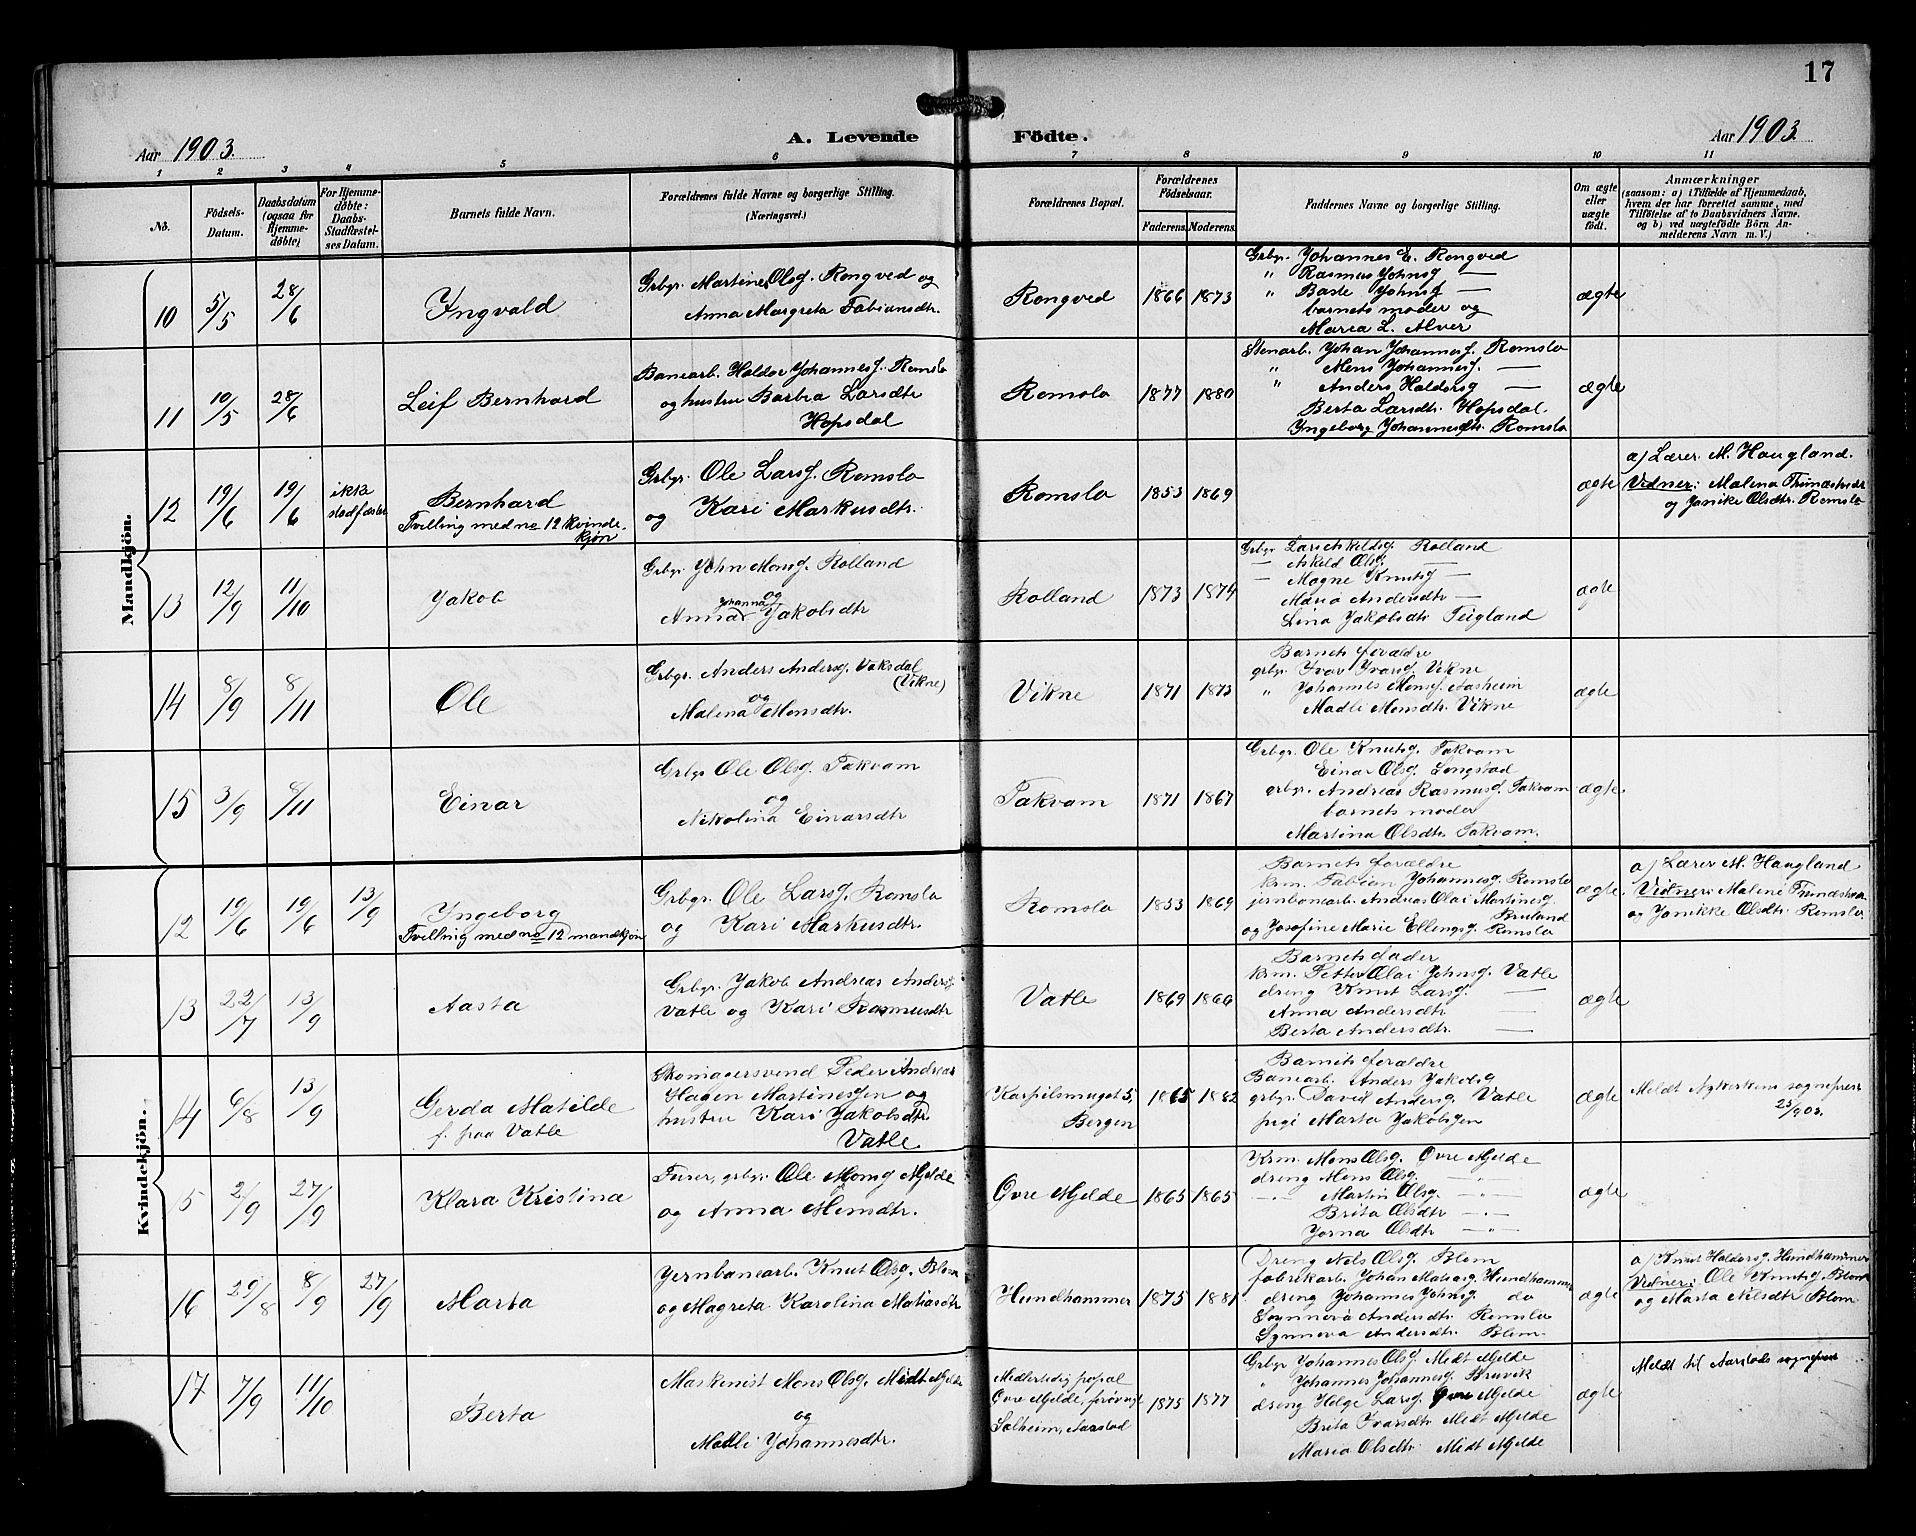 17
Aar 1903.
A. Levende Födte.
Aar 1903.
1 2 3 4 5 6 7 8 9 10 11
No.
Födsels-Datum.
Daabsdatum (ogsaa for Hjemmedöbte)
For Hjemmedöbte: Daabs-Stadfæstelses Datum.
Barnets fulde Navn.
Forældrenes fulde Navne og borgerlige Stilling.
(Næringsvei.)
Forældrenes Bopæl.
Forældrenes Födselsaar.
Faderens. Moderens.
Faddernes Navne og borgerlige Stilling.
Om ægte eller uægte födt.
Anmærkninger
(saasom: a) i Tilfælde af Hjemmedaab,
hvem der har forrettet samme, med
Tilföielse af to Daabsvidners Navne.
og b) ved uægtefödte Börn An-
melderens Navn m. V.)
Mandkjön.
10 5/5 28/6 Ingvald
Grbgr. Martines Olsg. Rongved og
Anna Margreta Fabiansdtr.
Rongved 1866 1873
Grbgr. Johannes E. Rongved
" Rasmus Johnsg —
" Baste Johnsg —
barnets moder og
Maria L. Alver
ægte
11 10/5 28/6 Leif Bernhard
Banearb. Haldor Johannesg. Romslo
og hustru Barbra Larsdtr
Hopsdal
Romslo 1877 1880
Stenarb. Johan Johannesg. Romslo
" Mons Johannesg. —
" Anders Haldorsg —
Berta Larsdtr. Hopsdal.
Ingeborg Johannesdtr. Romslo
ægte
12 19/6 19/6 ikke stadfæstet
Bernhard
Tvilling med no 12 kvinde-
kjøn
Grbgr. Ole Larsg. Romslo
og Kari Markusdtr.
Romslo 1853 1869
ægte
a) Lærer M. Haugland.
Vidner: Malena
og Janike Olsdtr. Romslo
13 12/9 11/10 Jakob
Grbgr. John Monsg. Rolland
og
Anna Johanna Jakobsdtr
Rolland 1873 1874
Grbgr. Rolland
— Askild Olsg. —
— Magne Knutsg —
Maria Andersdtr —
Lina Jakobsdtr Teigland
ægte
14 8/9 8/11 Ole
Grbgr. Anders Andersg. Vaksdal
(Vikne)
og
Malena Monsdtr.
Vikne 1871 1873
Barnets forældre
grbgr. Ivar Ivarsg. Vikne
" Johannes Monsg. Aasheim
Madli Monsdtr. Vikne
ægte
15 3/9 8/11 Einar
Grbgr Ole Olsg. Takvam
og
Nikolina Einarsdtr
Takvam 1871 1867
Grbgr. Ole Knutsg. Takvam
Einar Olsg.
grbgr. Andreas Rasmusg. Takvam
barnets moder
Martina Olsdtr. Takvam.
ægte.
Kvindekjön.
12 19/6 19/6 13/9 Ingeborg
Tvilling med no 12 mandkjøn
Grbgr. Ole Larsg. Romslo
og Kari Markusdtr.
Romslo 1853 1869
Barnets forældre
krm. Fabian Johannesg. Romslo
jernbanearb. Andreas Olai Martinesg.
Bruland
og Josefine Marie Ellingsg. Romslo
ægte
a) Lærer M. Haugland
Vidner: Malene
og Janikke Olsdtr. Romslo
13 22/7 13/9 Aasta
Grbgr. Jakob Andreas Andersg.
Vatle og Kari Rasmusdtr
Vatle 1869 1866
Barnets fader
krm. Petter Olai Johnsg. Vatle
dreng Knut Larsg. —
Anna Andersdtr —
Berta Andersdtr. —
ægte
14 6/8 13/9 Gerda Matilde
f. paa Vatle
Skomagersvend Peder Andreas
Hagen Martinesgen og
hustru Kari Jakobsdtr
Vatle
Karpilsmuget 5,
Bergen
1865 1882
Barnets forældre
Banearb. Anders Jakobsg
grbgr. David Andersg. Vatle
pige Marta Jakobsgen
ægte
Meldt Nykirkens sogneprest
25/9 03.
15 2/9 27/9 Klara Kristina
Furer, grbgr. Ole Monsg Mjelde
og Anna Monsdtr.
Øvre Mjelde 1865 1865
Krm. Mons Olsg. Øvre Mjelde
dreng Mons Olsg. — " —
— " — Martin Olsg. — " —
Brita Olsdtr — " —
Jorna Olsdtr — " —
ægte
16 29/8 8/9 27/9 Marta
Jernbanearb. Knut Olsg. Blom
og Magreta Karolina Matiasdtr
Hundhammer 1875 1881
Dreng Nils Olsg. Blom
fabrikarb. Johan Matiasg. Hundhammer
dreng Johannes Johnsg do
Synnøva Andersdtr Romslo
Synnøva Andersdtr. Blom.
ægte
a) Knut Haldorsg. Hundhammer
Vidner: Ole Knutsg. Blom
og Marta Nilsdtr Blom
17 7/9 11/10 Berta
Maskinist Mons Olsg. Midt Mjelde
og
Madli Johannesdtr.
Midlertidig popal
Øvre Mjelde, prøvrigt
Solheim, Aarstad
1875 1877
Grbgr Johannes Olsg. Midt Mjelde
" Johannes Johannesg. Bruvik
dreng Helge Larsg. Øvre Mjelde
Brita Ivarsdtr. Midt Mjelde
Maria Olsdtr. Midt Mjelde
ægte
Meldt til Aarstads sogneprest